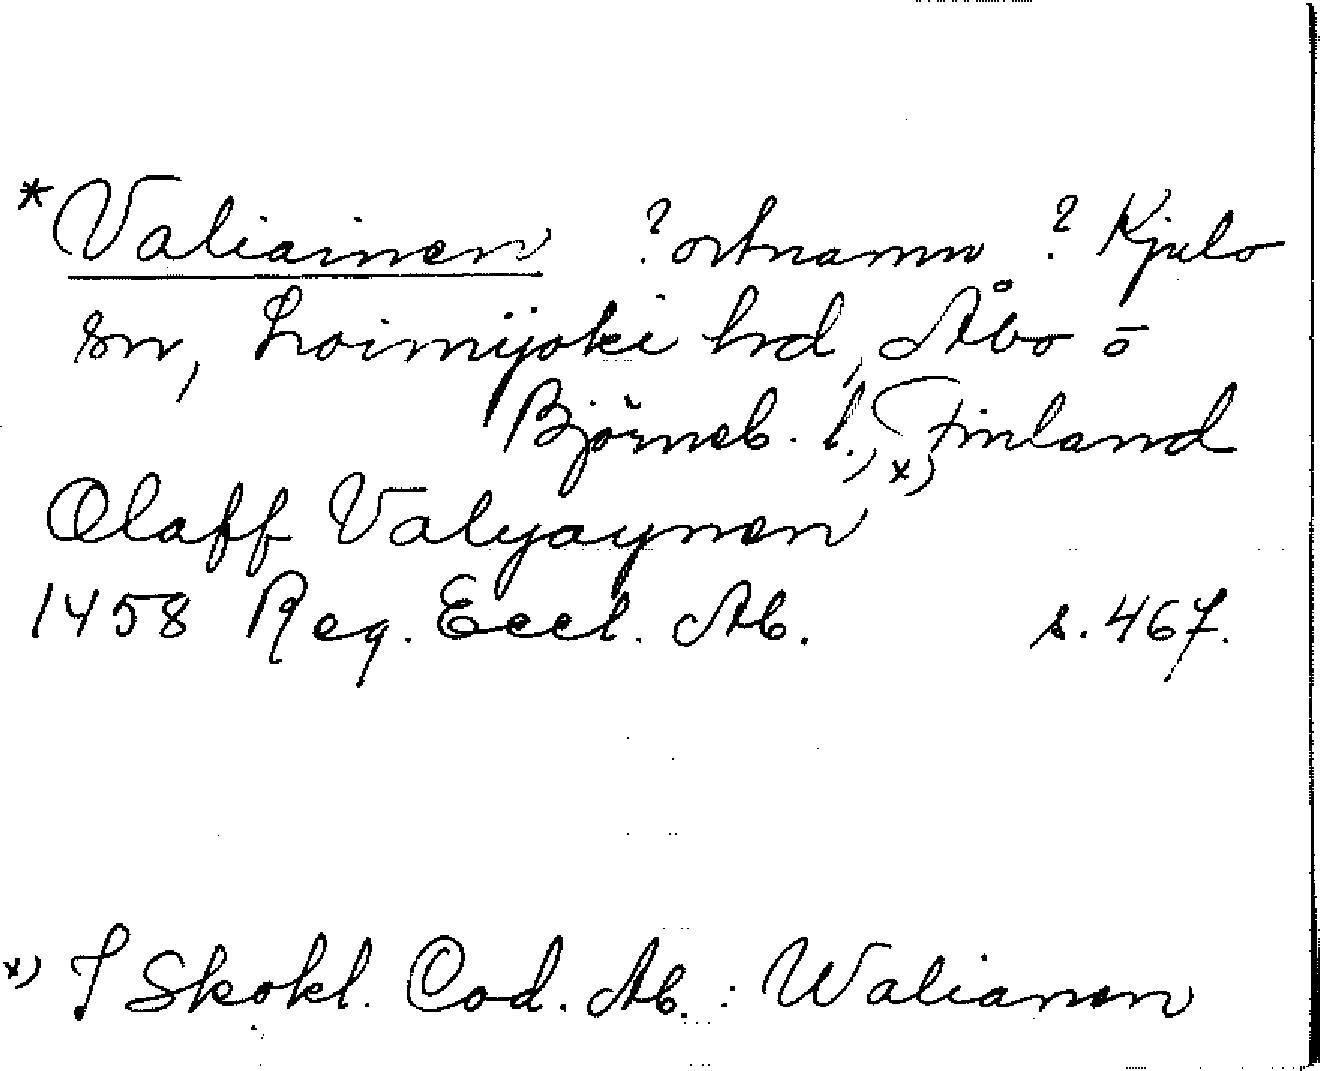 *Valiainen ? ortnamn ? Kjulo
sn, Loimijoki hrd, Åbo o
Björneb. l., Finland
Olaff Valyaynen x)
1458 Reg. Eccl. Ab. s. 467.
x) I Skokl. Cod. Ab. : Walianen